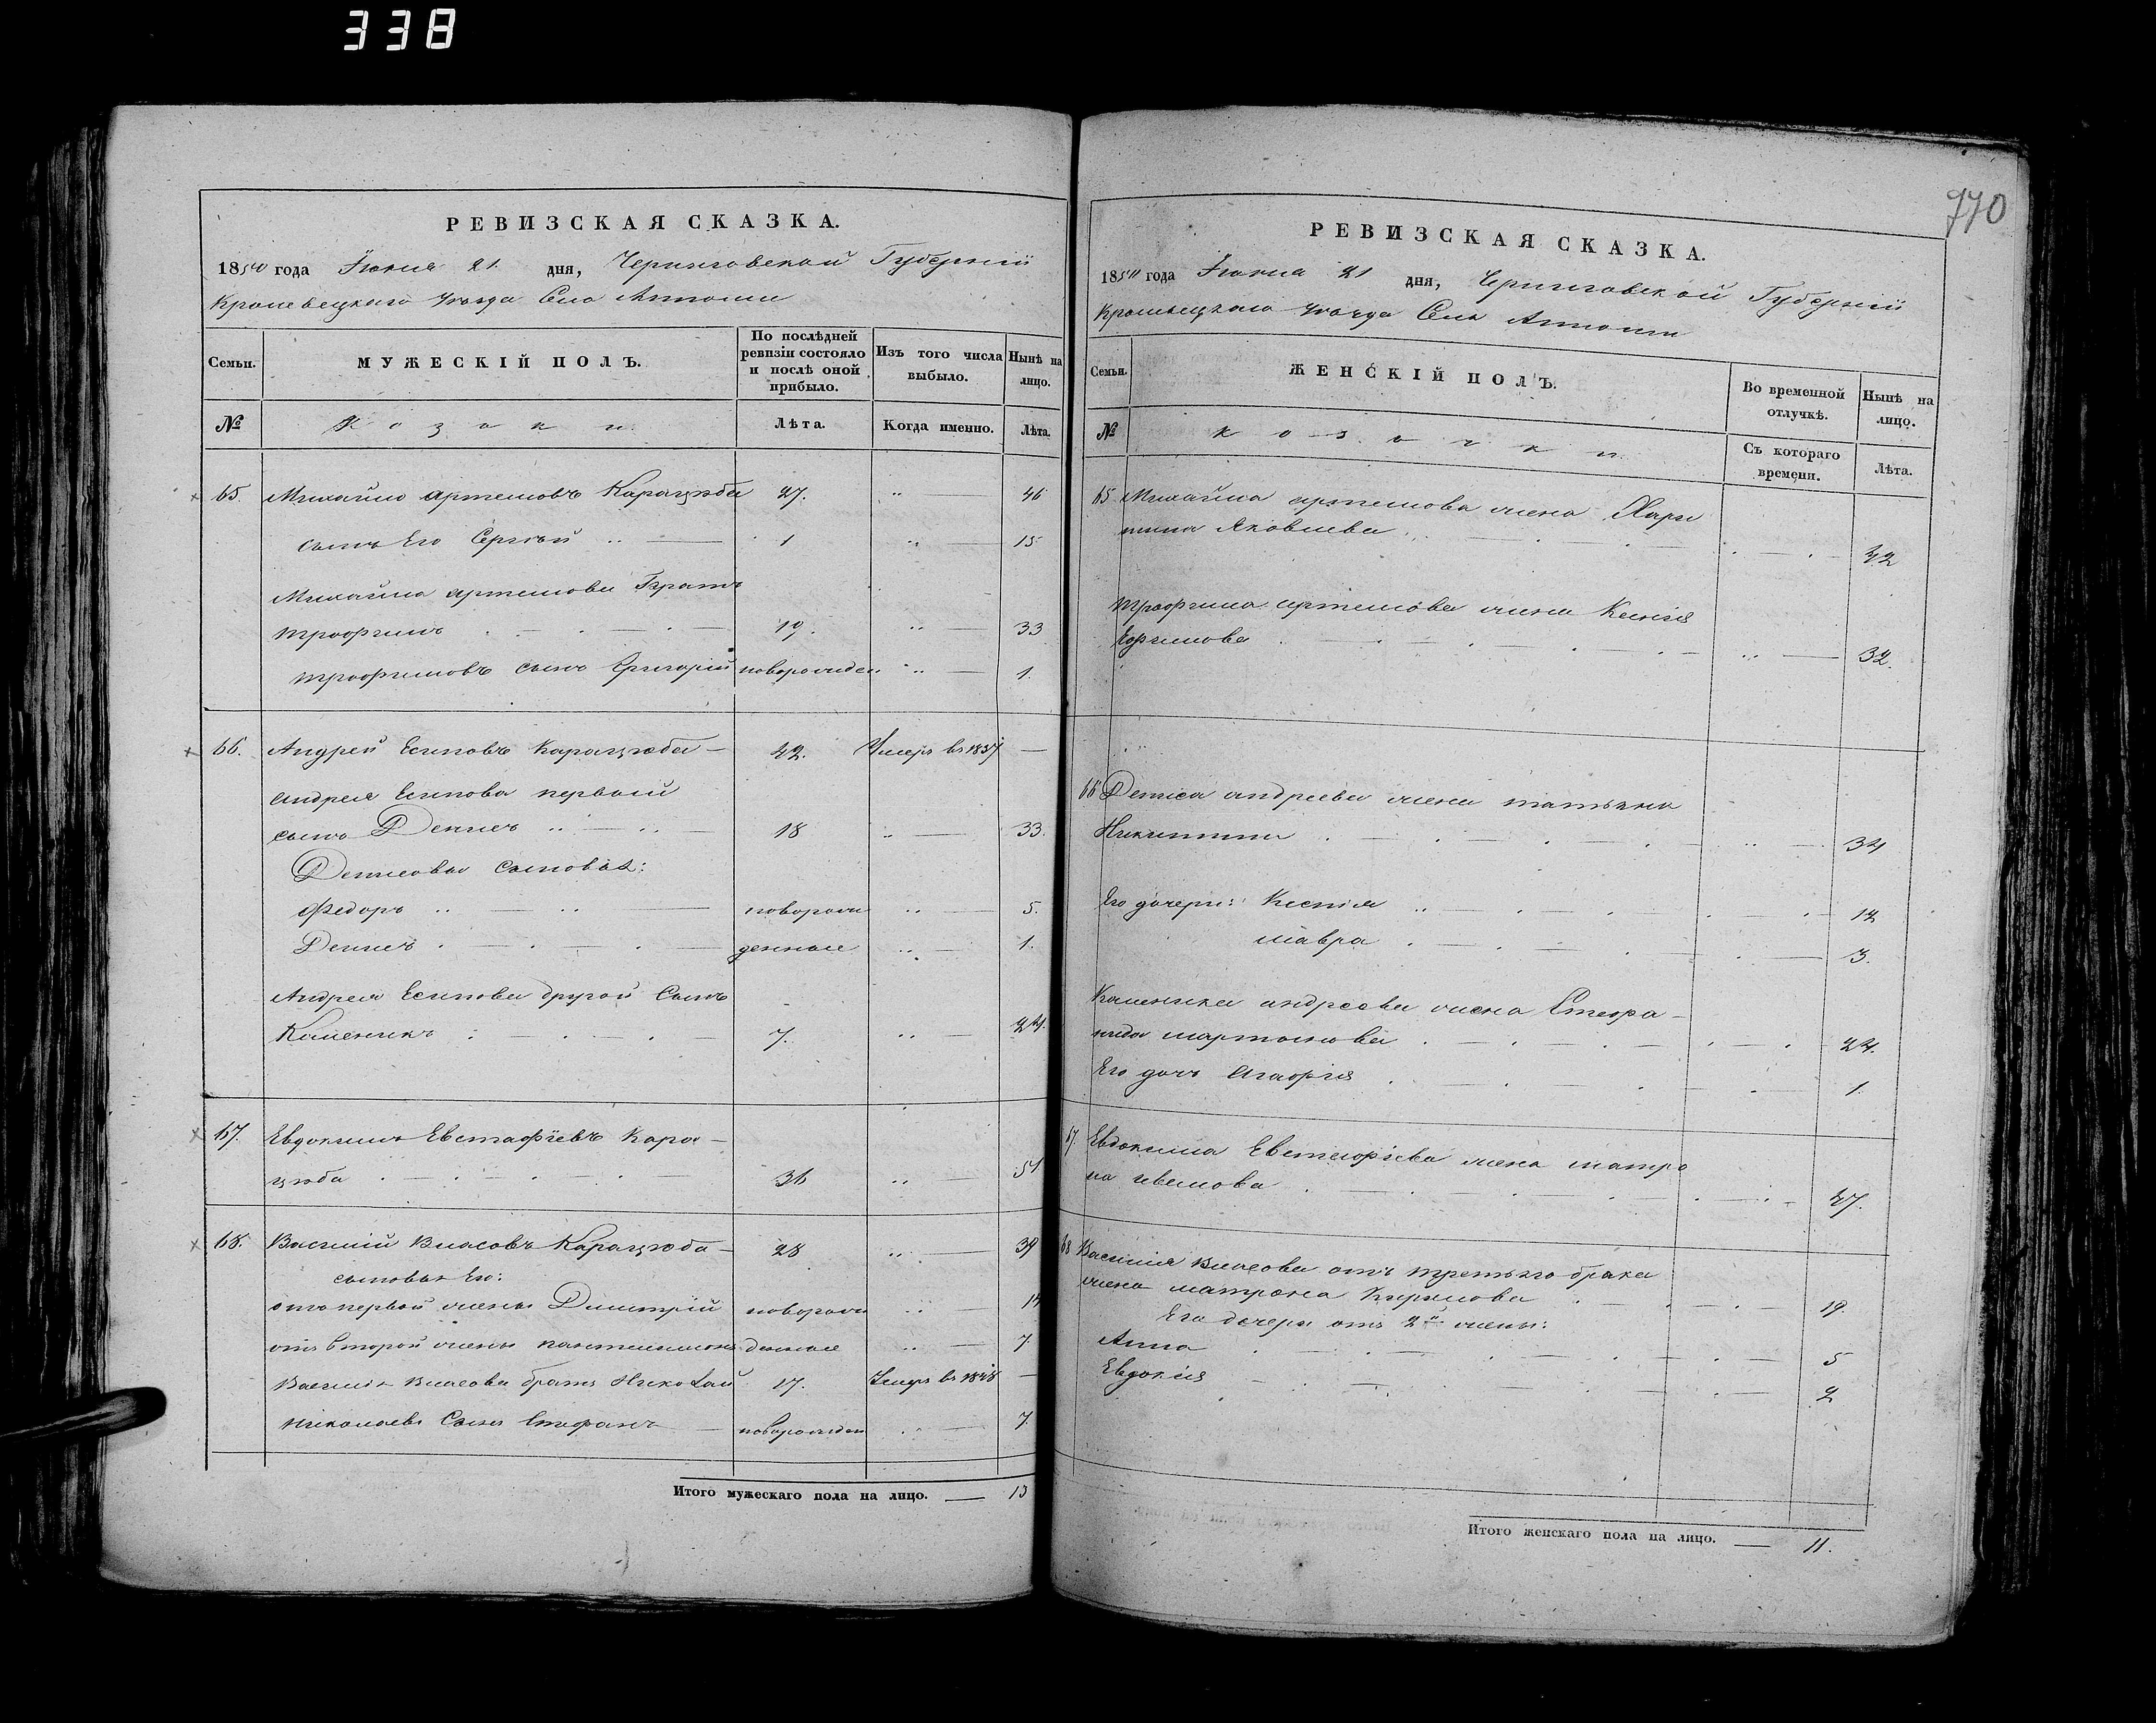 338
770
РЕВИЗСКАЯ СКАЗКА.
1850 года Іюня 21 дня, Черниговской Губерніи
Кролевецкаго уѣзда Село
Семьи.
МУЖЕСКІЙ ПОЛЪ.
По послѣдней ревизіи состояло и послѣ оной прибыло.
Изъ того числа выбыло.
Нынѣ на лицо.
№
Козаки
Лѣта.
Когда именно.
Лѣта.
65. Михайло Артемовъ Карацюба 27. 46
сынъ Его Сергѣй 1 15
Михайла Артемова братъ
Трофимъ 19. 33
Трофимовъ сынъ Григорій новорожден. 1.
66. Андрей Есиповъ Карацюба 42. Умеръ въ 1837
Андрея Есипова первый
сынъ Денисъ 18 33.
Денисовы сыновья:
Федоръ новорож 5.
Денисъ денные 1.
Андрея Есипова другой Сынъ
Каленикъ 7. 24.
67. Евдокимъ Евстафіевъ Кара-
цюба 36 51
68. Василій Власовъ Карацюба 28 39
сыновья Его:
отъ первой жены Димитрій новорож 14
отъ второй жены Пантелимонъ денные 7.
Василія Власова братъ Николай 17. Умеръ въ 1848
Николаевъ Сынъ Стефанъ новорожден 7.
Итого мужескаго пола на лицо. 13
РЕВИЗСКАЯ СКАЗКА.
1850 года Іюня 21 дня, Черниговской Губерніи
Кролевецкаго уѣзда Село
Семьи.
ЖЕНСКІЙ ПОЛЪ.
Во временной отлучкѣ.
Нынѣ на лицо.
№
Козачки
Съ котораго времени.
Лѣта.
65. Михайла Артемова жена Хари
тина Яковлева 42
Трофима Артемова жена Ксенія
Ефимова 32.
66 Дениса Андреева жена Татьяна
Никитина 34
Его дочери: Ксенія 12
Мавра 3.
Каленика Андреева жена Стефа-
нида Мартынова 24.
Его дочь Агафія 1.
67. Евдокима Евстафіева жена Матро
на Ивлиова 47.
68 Василія Власова отъ третьяго брака
жена Матрона Кирилова 19.
Его дочери отъ 2й жены:
Анна 5
Евдокія 2
Итого женскаго пола на лицо. 11.